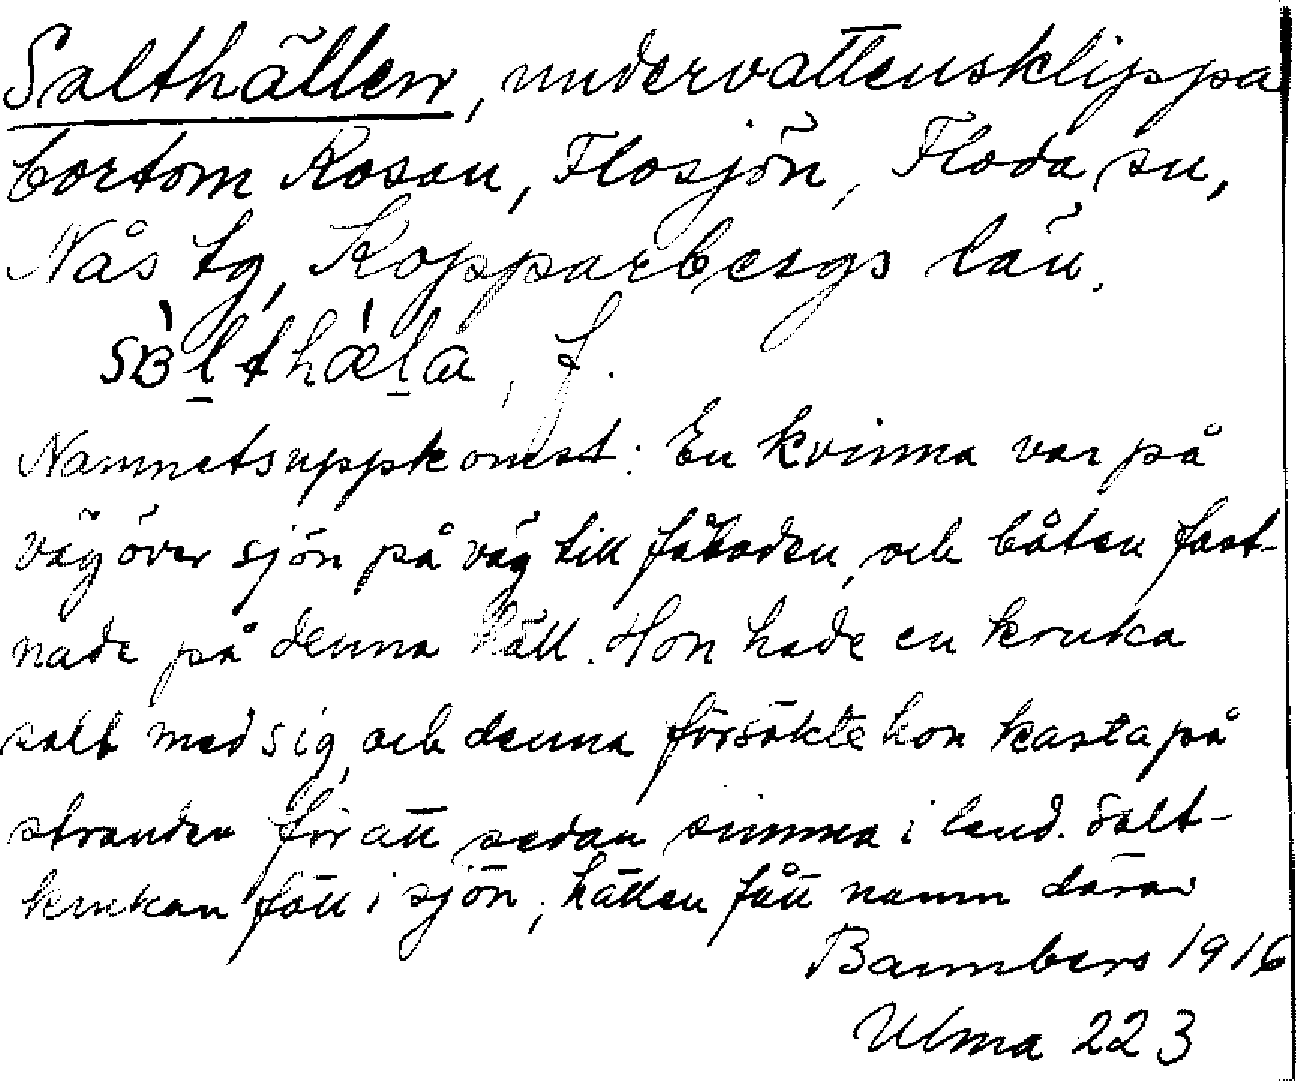 Salthällen, undervattensklippa
bortom Rosan, Flosjön, Floda sn,
Nås tg, Kopparbergs län.
f.
Namnetsuppkomst: En kvinna var på
väg över sjön på väg till fäboden, och båten fast-
nade på denna häll. Hon hade en kruka
salt med sig, och denna försökte hon kasta på
stranden för att sedan simma i land. Salt-
krukan föll i sjön; hällen fått namn därav
1916
Ulma 223